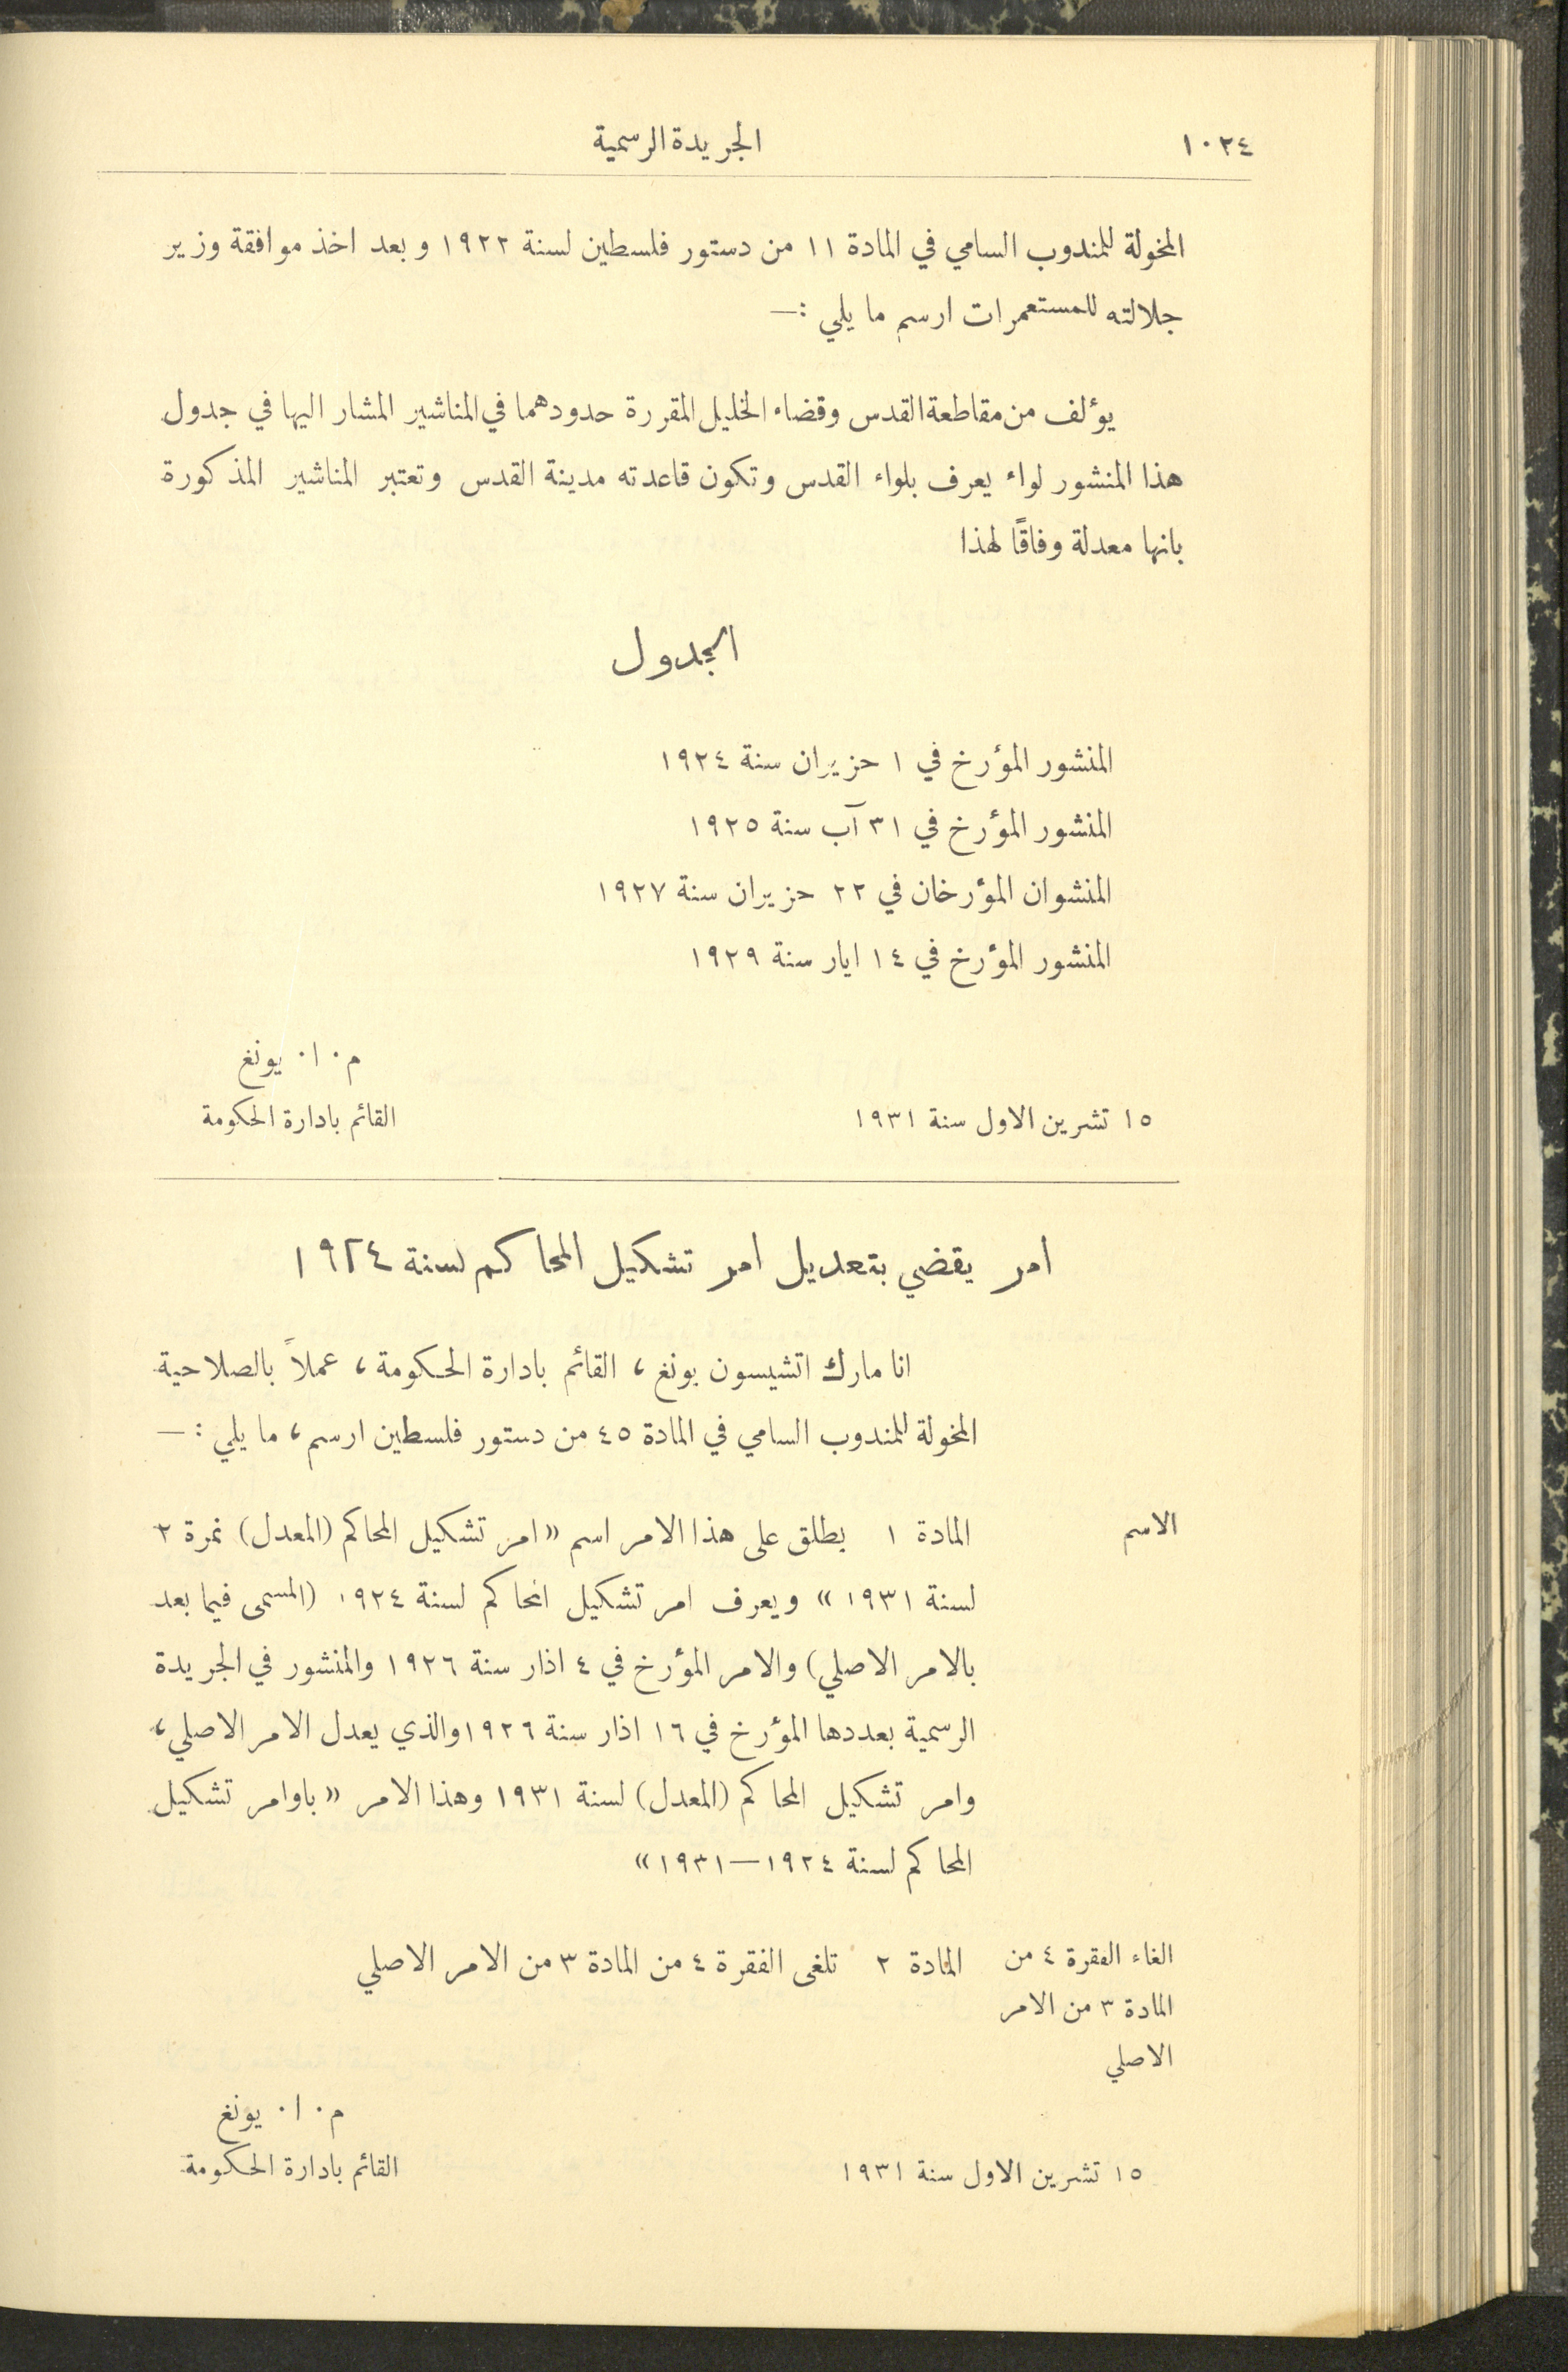 ١٠٢٤
الجريدة الرسمية
المخولة للمندوب السامي في المادة ١١ من دستور فلسطين لسنة ١٩٢٢ وبعد اخذ موافقة وزير
جلالته للمستعمرات ارسم ما يلي :—
يؤلف من مقاطعة القدس وقضاء الخليل المقررة حدودهما في المناشير المشار اليها في جدول
هذا المنشور لواء يعرف بلواء القدس وتكون قاعدته مدينة القدس وتعتبر المناشير المذكورة
بانها معدلة وفاقًا لهذا
الجدول
المنشور المؤرخ في ١ حزيران سنة ١٩٢٤
المنشور المؤرخ في ٣١ آب سنة ١٩٢٥
المنشوان المؤرخان في ٢٢ حزيران سنة ١٩٢٧
المنشور المؤرخ في ١٤ ايار سنة ١٩٢٩
م ٠ ا ٠ يونغ
١٥ تشرين الاول سنة ١٩٣١
القائم بادارة الحكومة
امر يقضي بتعديل امر تشكيل المحاكم لسنة ١٩٢٤
انا مارك اتشيسون يونغ ، القائم بادارة الحكومة ، عملاً بالصلاحية
المخولة للمندوب السامي في المادة ٤٥ من دستور فلسطين ارسم ، ما يلي :—
الاسم
المادة ١ يطلق على هذا الامر اسم « امر تشكيل المحاكم (المعدل) نمرة ٢
لسنة ١٩٣١ » ويعرف امر تشكيل المحاكم لسنة ١٩٢٤ (المسمى فيما بعد
بالامر الاصلي) والامر المؤرخ في ٤ اذار سنة ١٩٢٦ والمنشور في الجريدة
الرسمية بعددها المؤرخ في ١٦ اذار سنة ١٩٢٦ والذي يعدل الامر الاصلي ،
وامر تشكيل المحاكم (المعدل) لسنة ١٩٣١ وهذا الامر « باوامر تشكيل
المحاكم لسنة ١٩٢٤—١٩٣١ »
الغاء الفقرة ٤ من
المادة ٣ من الامر
الاصلي
المادة ٢ تلغى الفقرة ٤ من المادة ٣ من الامر الاصلي
م ٠ ا ٠ يونغ
١٥ تشرين الاول سنة ١٩٣١
القائم بادارة الحكومة